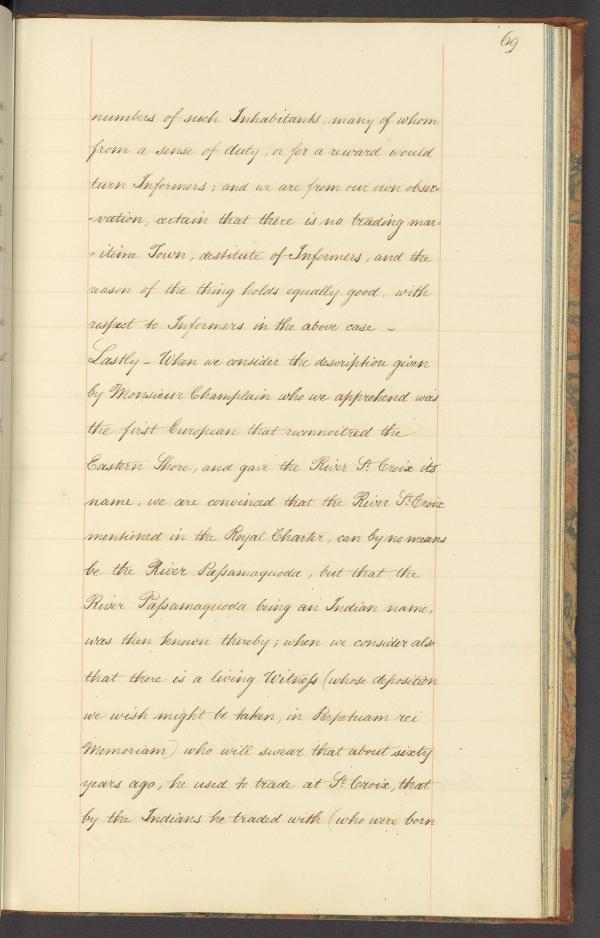 69
numbers of such Inhabitants, many of whom
from a sense of duty, or for a reward would
turn Informers; and we are from our own obser-
-vation, certain that there is no trading mar=
=itime Town, destitute of Informers, and the
reason of the thing holds equally good, with
respect to Informers in the above case ~
Lastly – When we consider the description given
by Monsieur Champlain who we apprehend was
the first European that reconnoitred the
Eastern Shore, and gave the River St. Croix its
name, we are convinced that the River St. Croix
mentioned in the Royal Charter, can by no means
be the River Paſsamaquoda, but that the
River Paſsamaquoda being an Indian name,
was then known thereby; when we consider also
that there is a living Witneſs (whose deposition
we wish might be taken, in Perpetuam rei
Memoriam) who will swear that about sixty
years ago, he used to trade at St. Croix, that
by the Indians he traded with (who were born